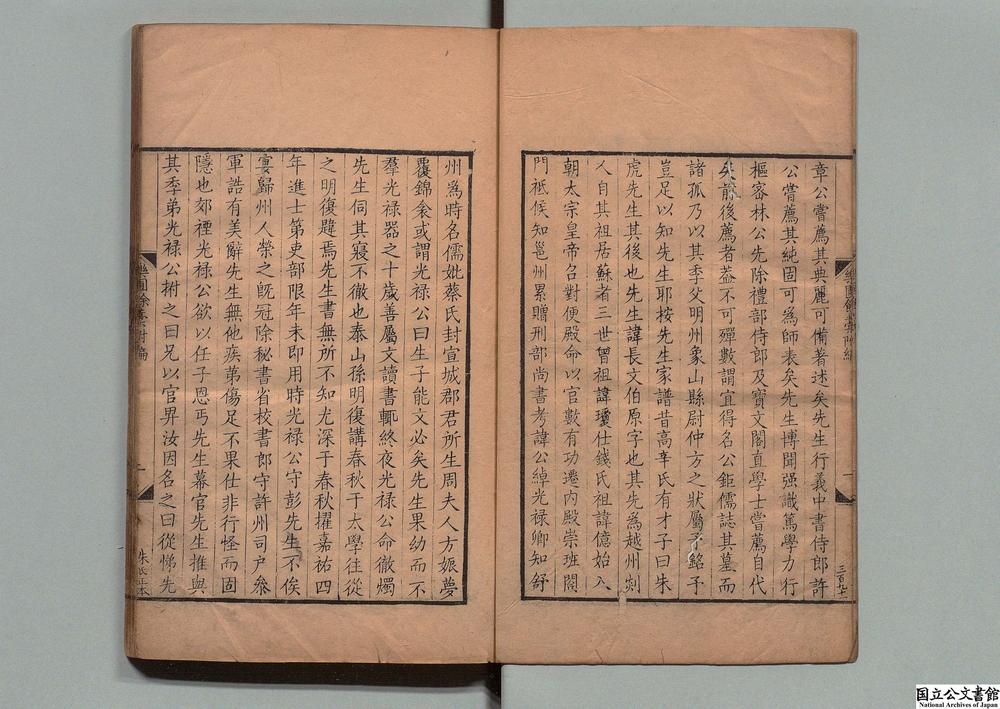 章公嘗薦其典麗可備著述矣先生行義中書侍郎許
公嘗薦其純固可為師表矣先生博聞强識篤學力行
樞密林公先除禮部侍郎及寶文閣直學士嘗薦自代
矣前後薦者葢不可殫數謂宜得名公鉅儒誌其墓而
諸孤乃以其季父明州象山縣尉仲方之狀屬予銘予
豈足以知先生耶按先生家譜昔高辛氏有才子曰朱
虎先生其後也先生諱長文伯原字也其先為越州剡
人自其祖居蘇者三世曾祖諱瓊仕錢氏祖諱億始入
朝太宗皇帝召對便殿命以官數有功遷内殿崇班閤
門祗候知邕州累贈刑部尚書考諱公綽光禄卿知舒
州為時名儒妣蔡氏封宣城郡君所生周夫人方娠夢
覆錦衾或謂光禄公曰生子能文必矣先生果幼而不
羣光禄器之十歲善屬文讀書輒終夜光禄公命徹燭
先生伺其寢不徹也泰山孫明復講春秋于太學往從
之明復韙焉先生書無所不知尤深于春秋擢嘉祐四
年進士第吏部限年未即用時光禄公守彭先生不俟
寔歸州人榮之旣冠除秘書省校書郎守許州司户叅
軍誥有美辭先生無他疾弟傷足不果仕非行怪而固
隱也郊禋光禄公欲以任子恩丐先生幕官先生推與
其季弟光禄公拊之曰兄以官昇汝因名之曰從悌先
樂圃餘藁附編
一
朱氏本
国立公文書館
National Archives of Japan